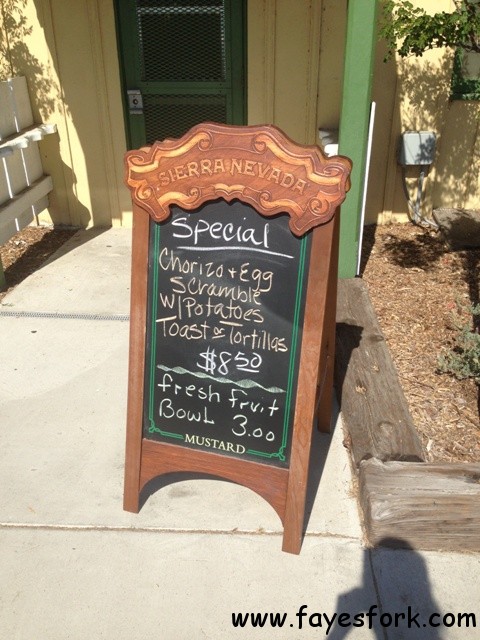 SIERRA NEVADA
Special
Chorizo + Egg
Scramble
W/Potatoes
Toast or Tortillas
$8.50
fresh fruit
Bowl 3.00
MUSTARD
www.fayesfork.com